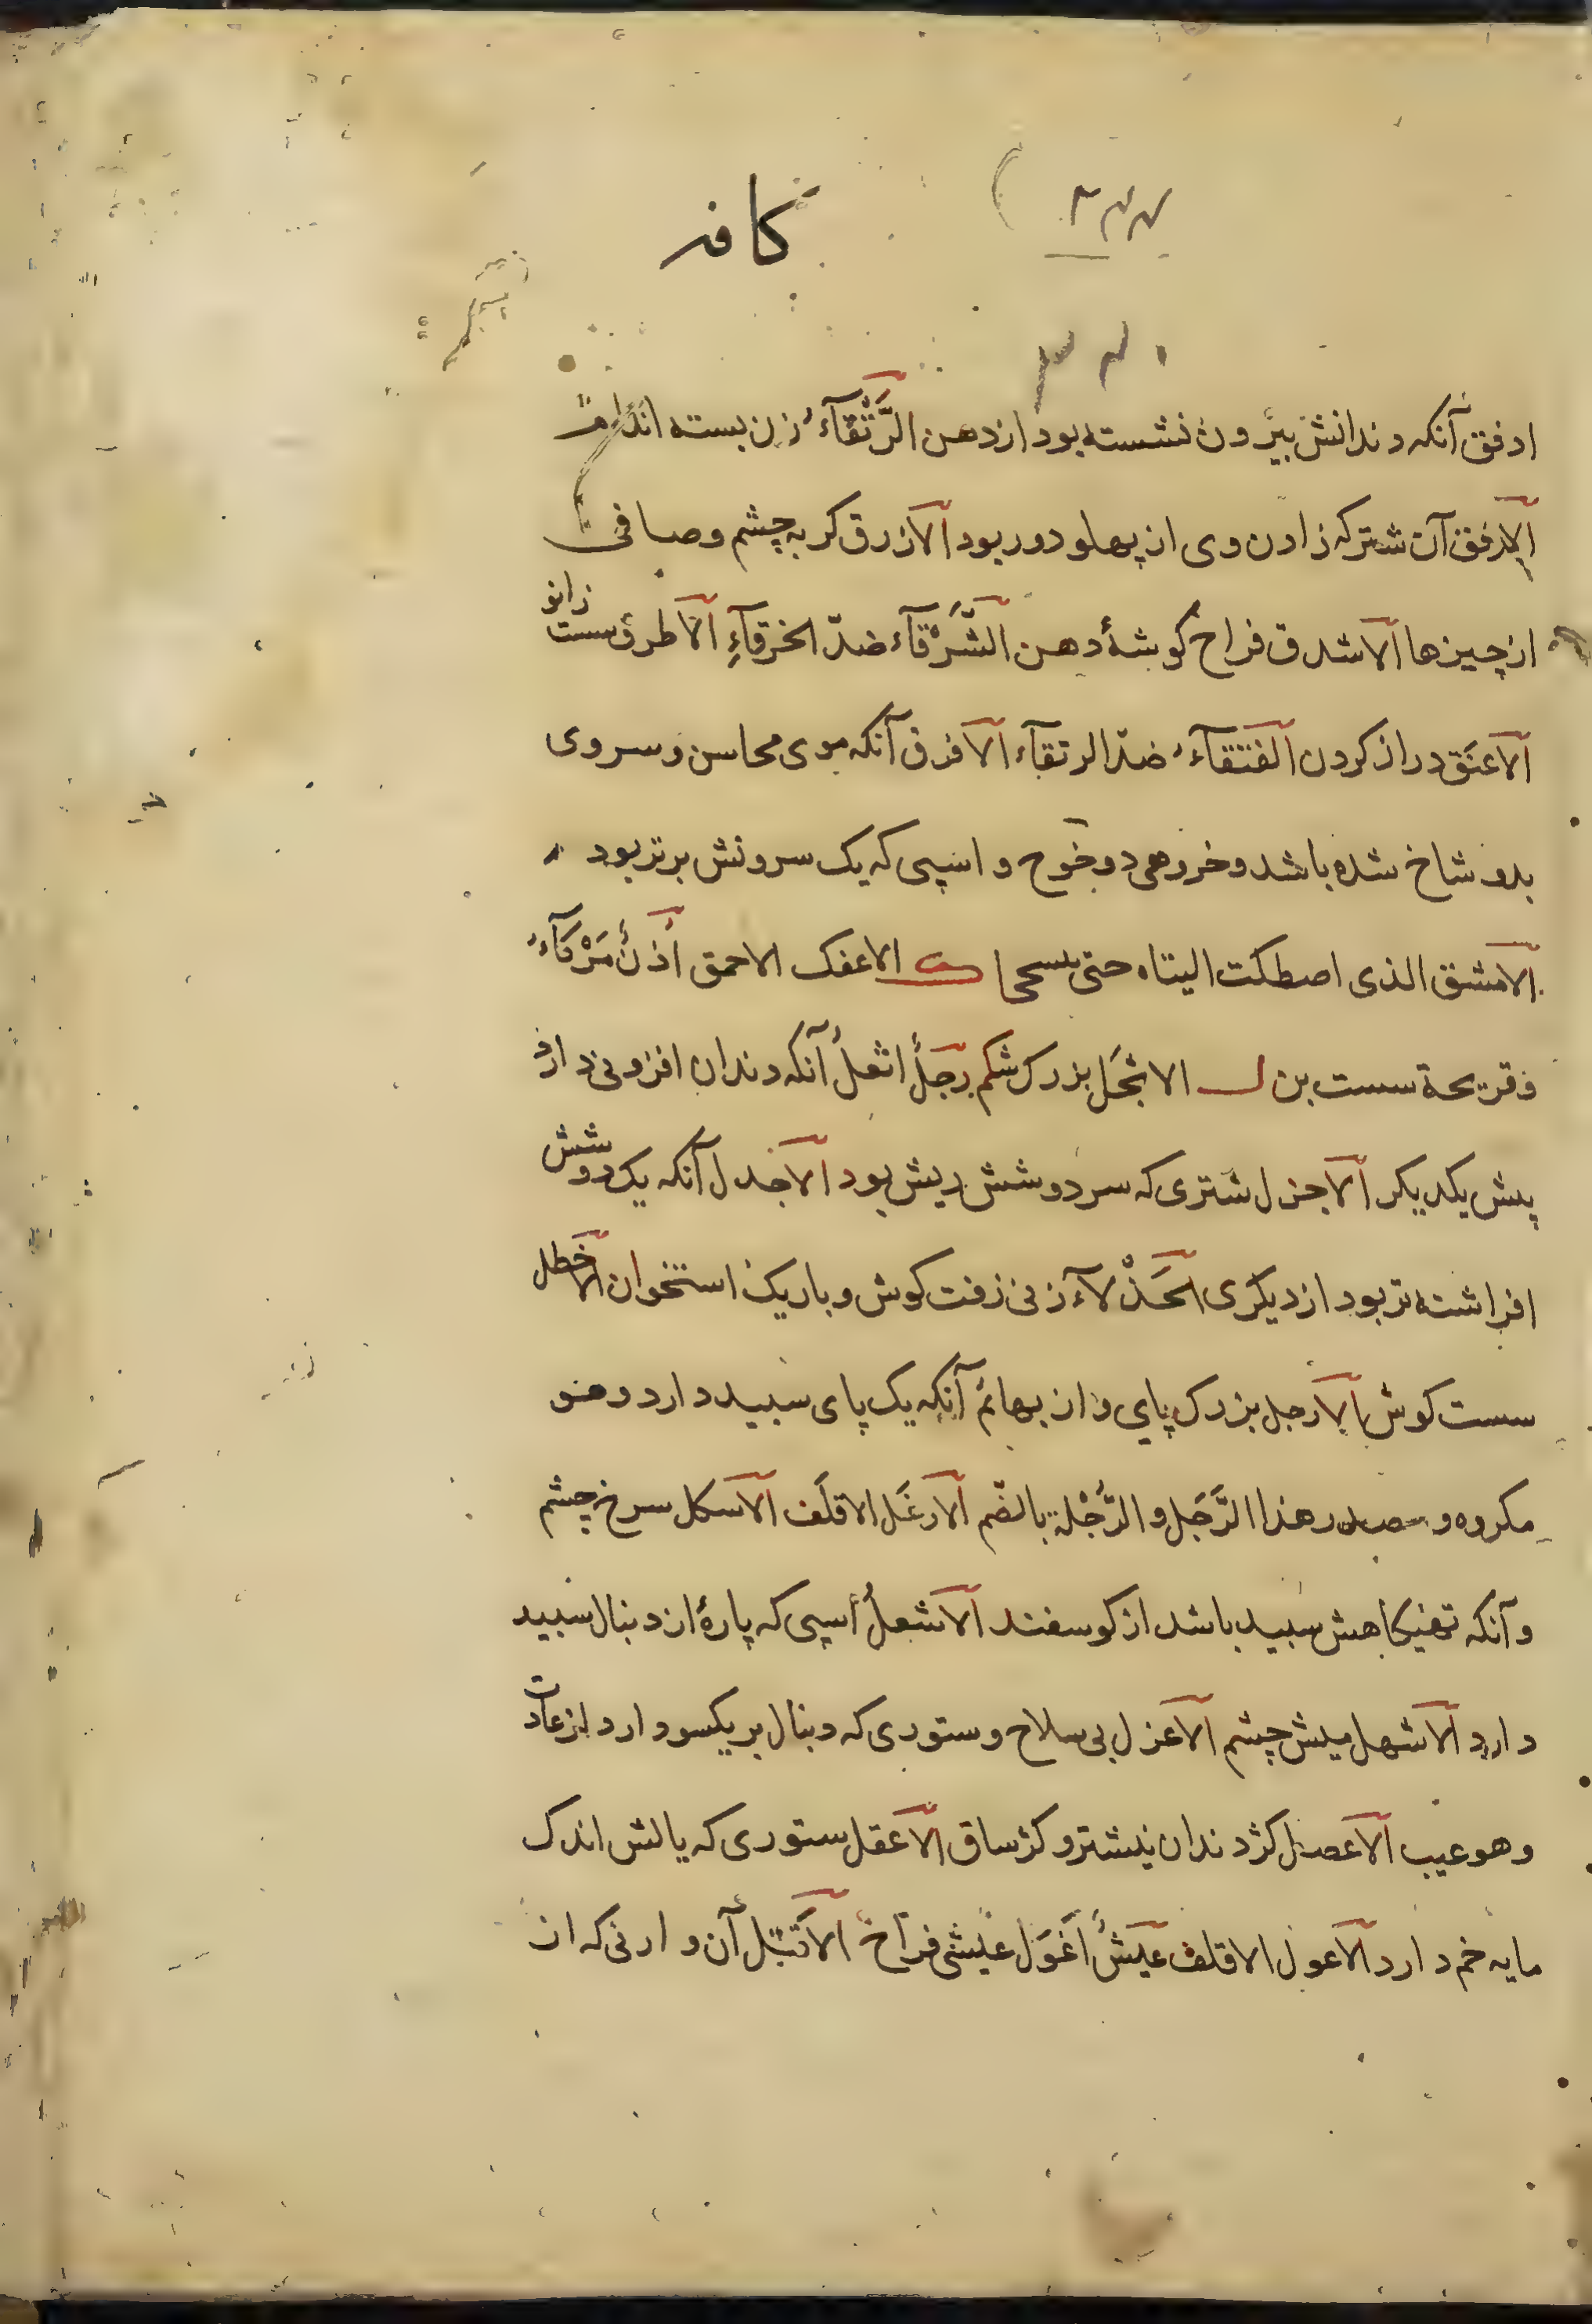 کافر
ادفق آنکه دندانش بیرون نشسته بود از دهن الرَّتْقَآءُ زن بسته اندام
الادفق آن شتر که زاون وی از پهلو دور بود الازرق کربه چشم وصافی
از چیزها الاشدق فراخ کوشهٔ دهن الشَّرْقآء ضدّ الخرقآءِ الاطرق سست زانو
الاعنَق دراز کردن الفَتقآءُ ضدّ الرتقآء الافرق آنکه موی محاسن و سر وی
بدو شاخ شده باشد و خروهی دوخوح و اسپی که یک سرونش برتر بود
الامشق الذی اصطکت الیتاه حتی ک الاعفک الاحمق اُذنٌ مَرْکآءُ
و قریحة سست بن ل الاثجَل بزرک شکم رَجلٌ اثعلُ آنکه دندان افزونی دارد
پیش یکدیکر الاجزل شتری که سر دوشش ریش بود الاجدل آنکه یک دوشش
افراشته تر بود از دیکری الحَدْلآء زنی زفت کوش و باریک استخوان الاخطل
سست کوش الارجل بزرک پای و از بهائم آنکه یک پای سبید دارد وهو
مکروه و مصدر هذا الرَّجَل و الرُّجْلة بالضّم الارغَل الاقلَف الاسکل سرخ چشم
و آنکه تهیکاهش سبید باشد از کوسفند الاشعلُ اسپی که پارهٔ از دنبال سبید
دارد الاشهل میش چشم الاعزل بی سلاح و ستوری که دنبال بر یکسو دارد از عادت
وهو عیب الاعصل کژ دندان نیشتر و کژ ساق الاعقل ستوری که یالش اندک
مایه خم دارد الاعول الاقلف عَیشٌ اَغوَل عیشی فراخ الاَقبَل آن وارنی که از